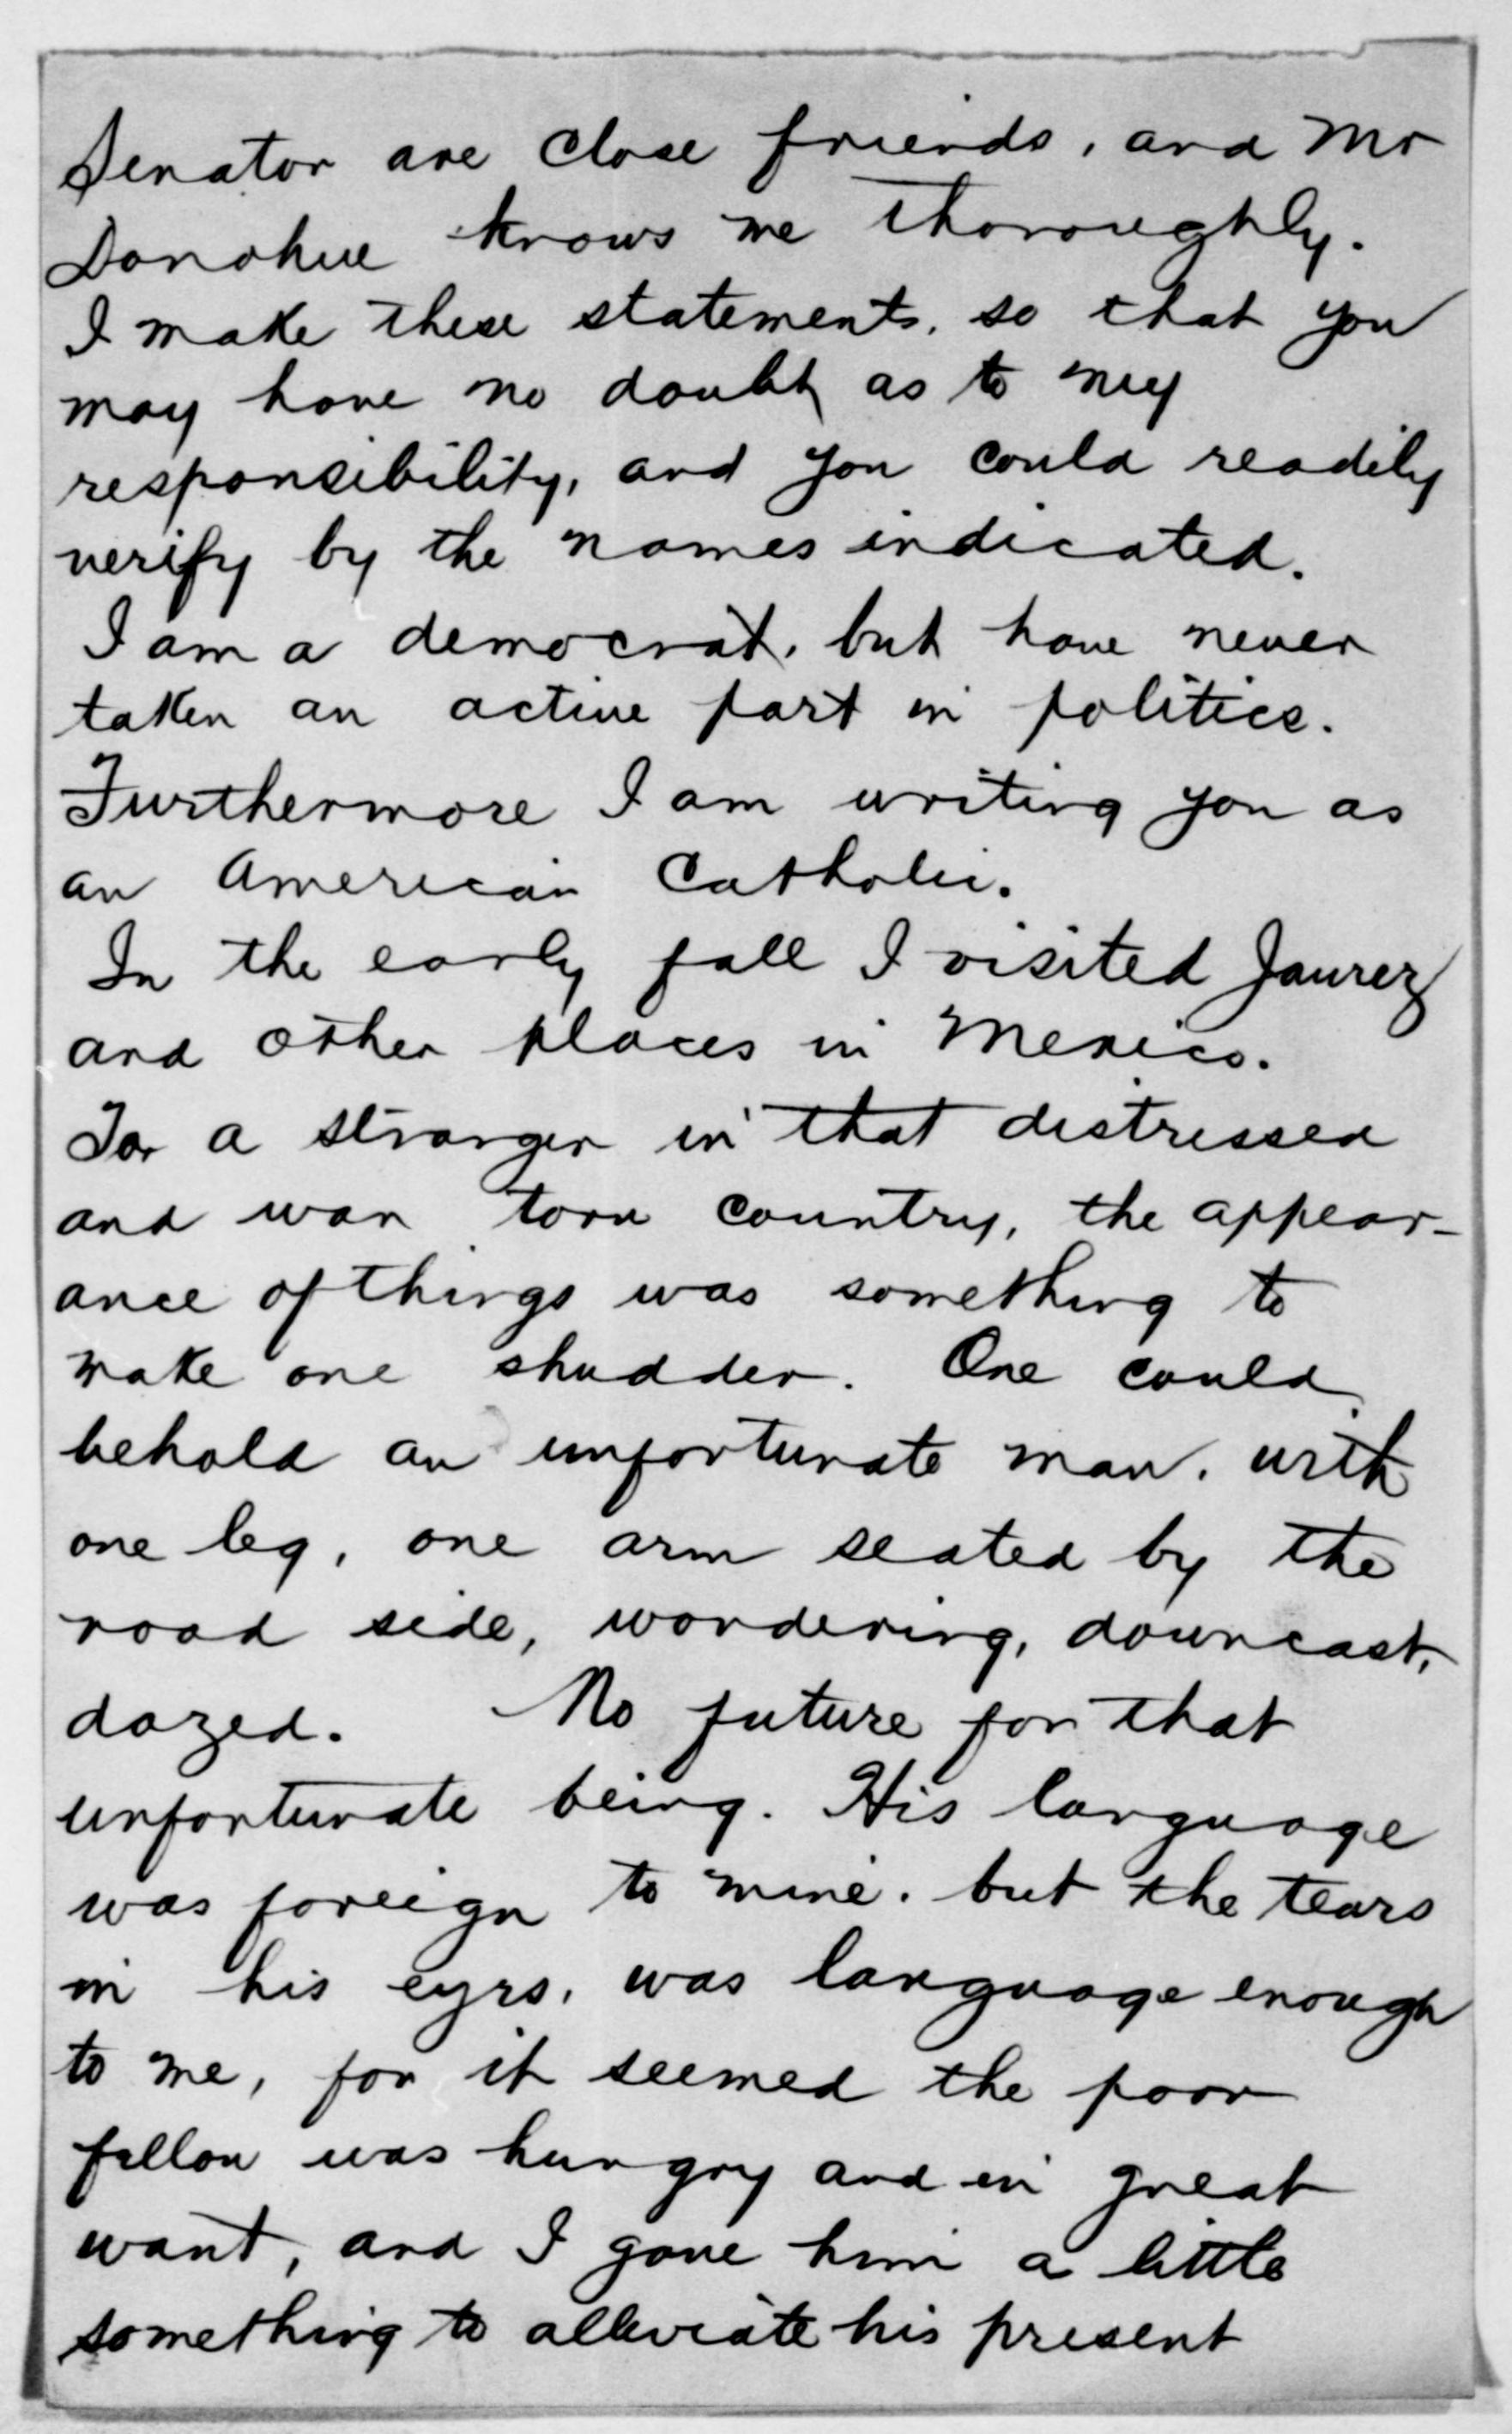 Senator are close friends, and Mr
Donohue knows me thoroughly.
I make these statements, so that you
may have no doubt as to my
responsibility, and you could readily
verify by the names indicated.
I am a democrat, but have never
taken an active part in politics.
Furthermore I am writing you as
an American Catholic.
In the early fall I visited Jaurez
and other places in Mexico.
To a stranger in that distressed
and war torn country, the appear-
ance of things was something to
make one shudder. One could
behold an unfortunate man, with
one leg, one arm seated by the
road side, wondering, downcast,
dazed. No future for that
unfortunate being. His language
was foreign to mine. but the tears
in his eyrs, was language enough
to me, for it seemed the poor
fellow was hungry and in great
want, and I gave him a little
something to alleviate his present